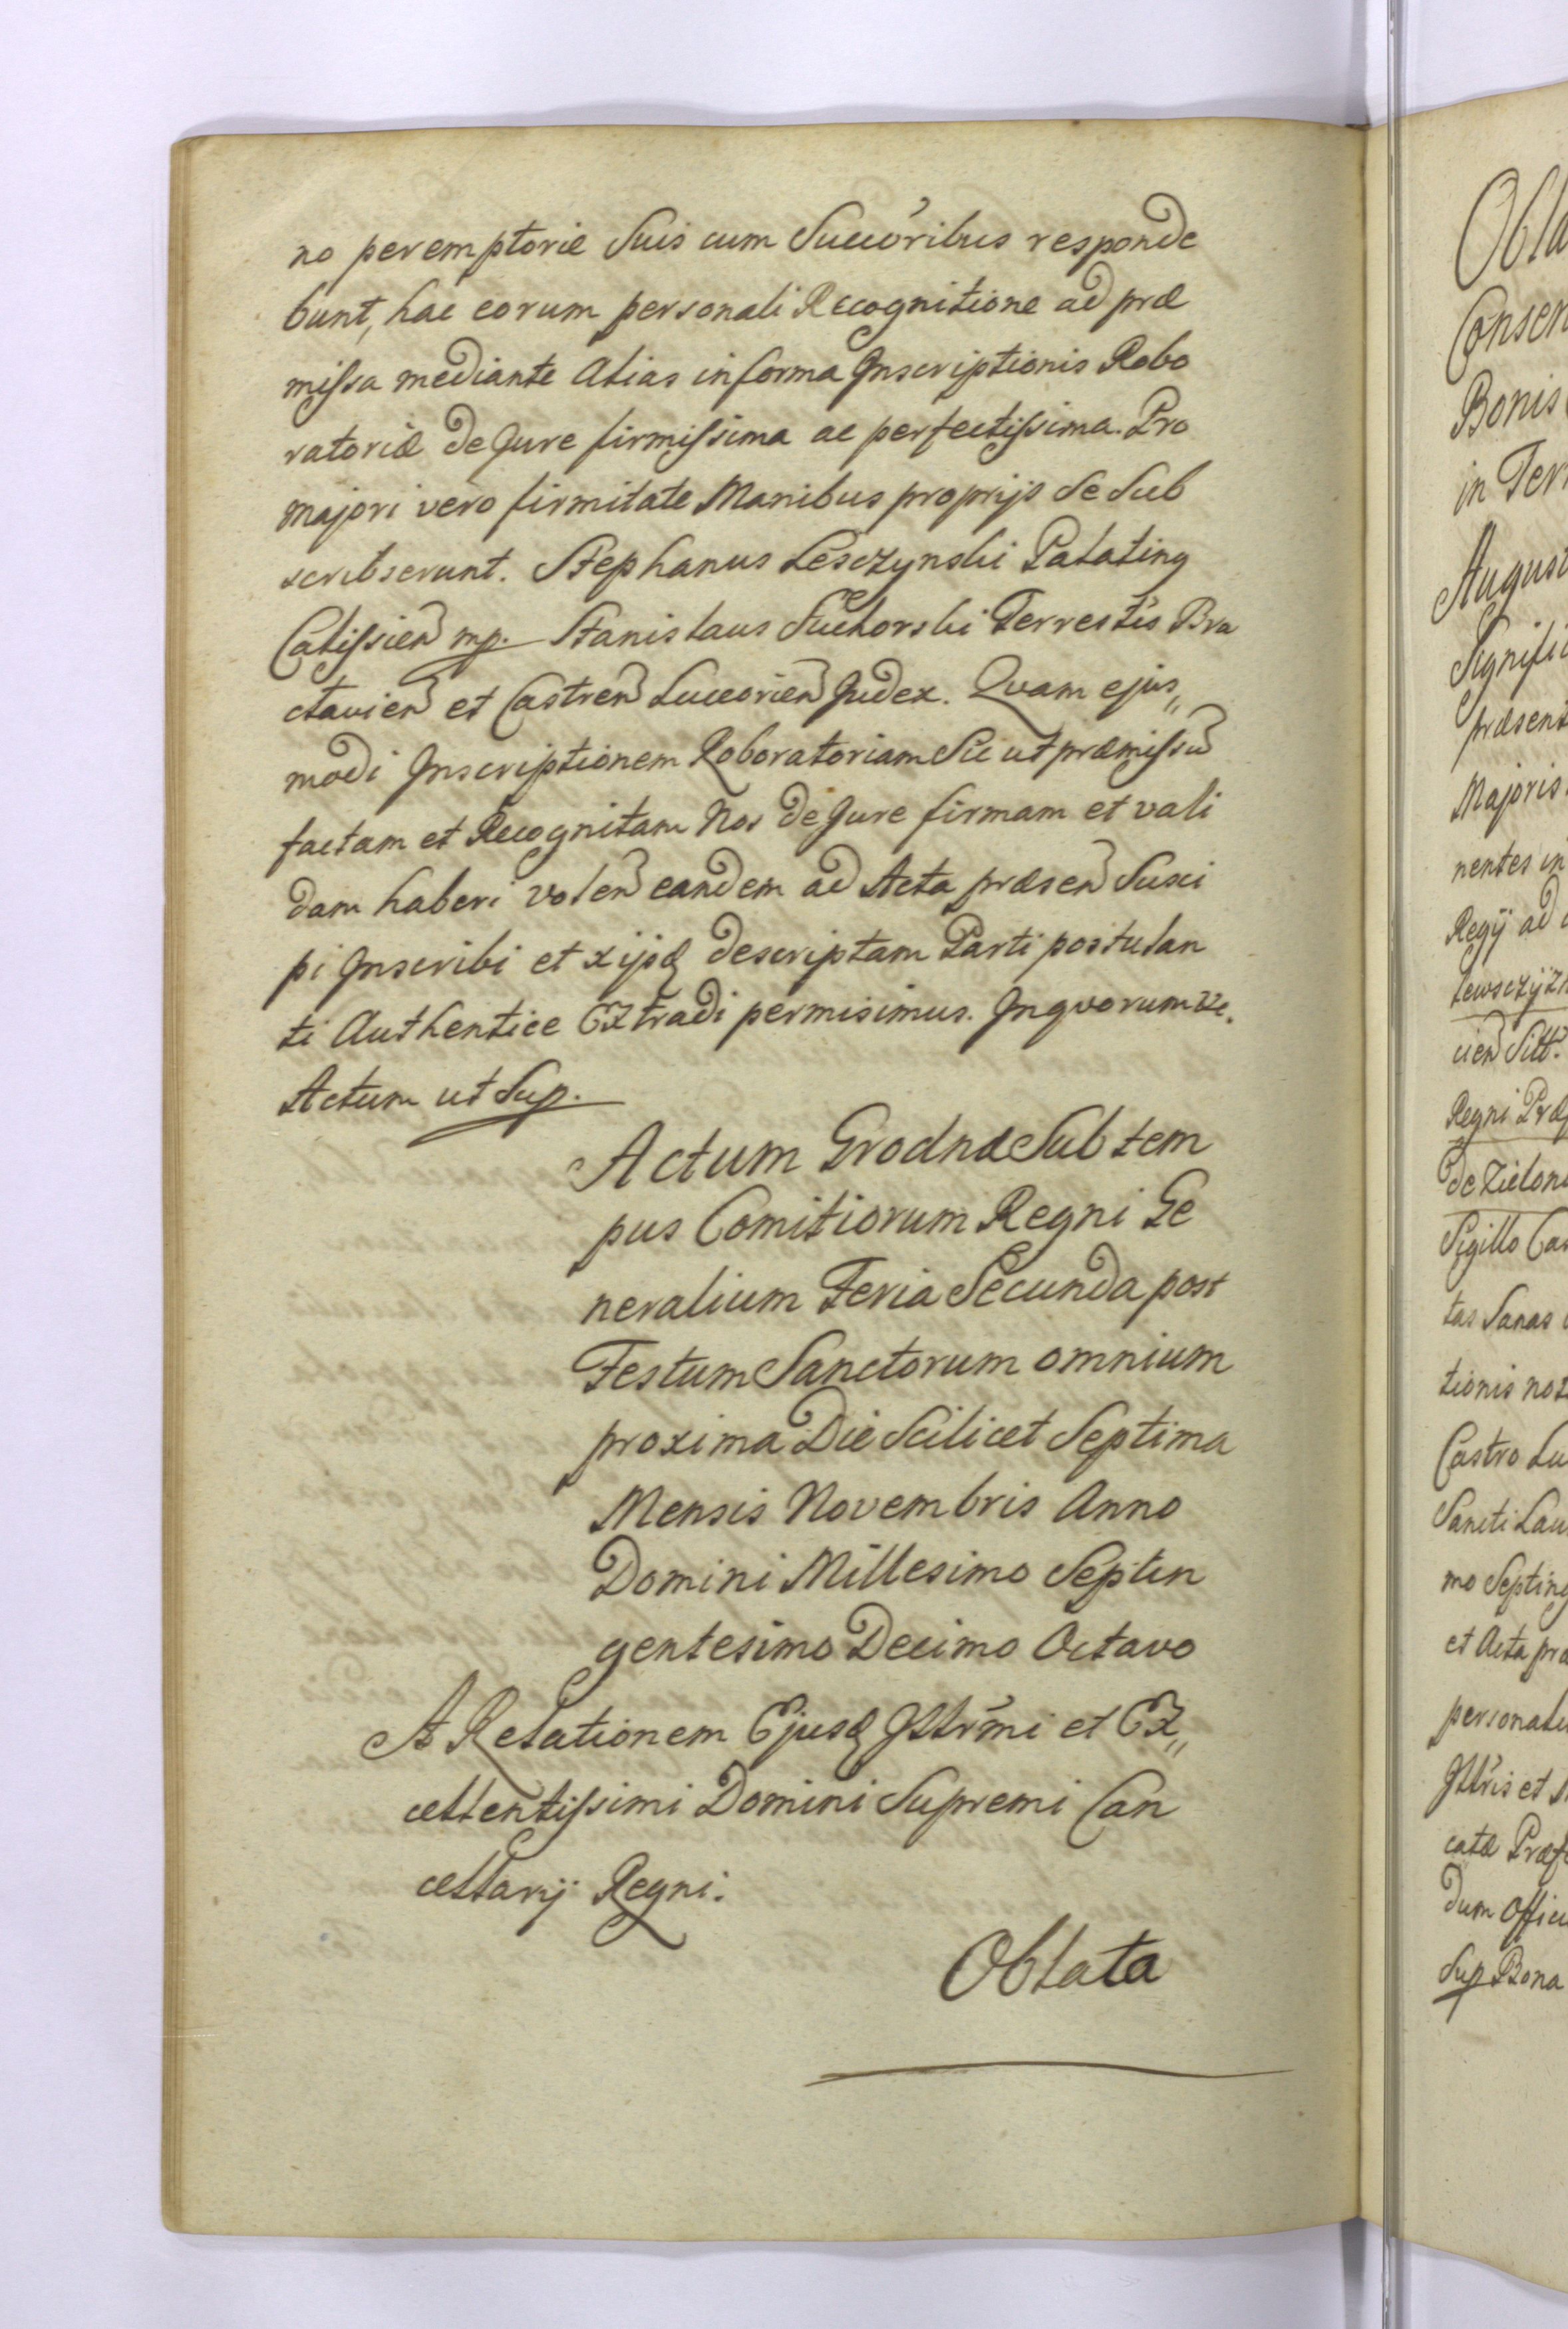 no peremptoriè Suis cum Succ̃oribus responde
bunt, hac eorum personali Recognitione ad præ
miſsa mediante Alias in forma Inscriptionis Robo
ratoriæ de Jure firmiſsima ac perfectiſsima. Pro
majori vero firmitate Manibus proprijs se sub
scribserunt. Stephanus Lesczynski Palating
Caliſsien̄ mp. Stanislaus Suchorski Terrestis Bra
clavien̄ et Castren̄ Luceorien̄ Judex. Qvam ejus,,
modi Inscriptionem Roboratoriam Sic ut præmiſsū
factam et Recognitam Nos de Jure firmam et vali
dam haberi volen̄ eandem ad Acta præsen̄ Susci
pi Inscribi et xijsq descriptam Parti postulan
ti Authentice Extradi permisimus. In qvorum &c.
Actum ut Sup.
Actum Grodnæ Sub tem
pus Comitiorum Regni Ge
neralium Feria Secunda post
Festum Sanctorum omnium
proxima Die Scilicet Septima
Mensis Novembris Anno
Domini Millesimo Septin
gentesimo Decimo Octavo
A Relationem Ejusq Illr̃mi et Ex,,
cellentiſsimi Domini Supremi Can
cellarij Regni.
Oblata
Obla
Consen
Bonis
in Terr
August
Signific
præsent
Majoris
nentes in
Regij ad
lewsczyzn
cien̄ Sitt.
Regni Præ
de Zielon
Sigillo Can
tas Sanas
tionis not
Castro Lu
Sancti Lau
mo Septing
et Acta præ
personali
Illr̃is et
catæ Præf
dum offici
Sup Bona